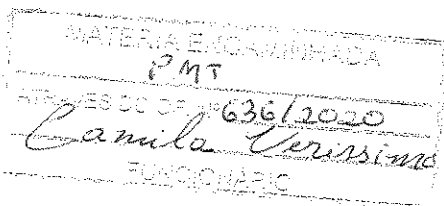 MATERIA ENCAMINHADA
PMT
ATRAVES DO OF. Nº 636/2020
Camila Verissimo
FUNCIONARIO